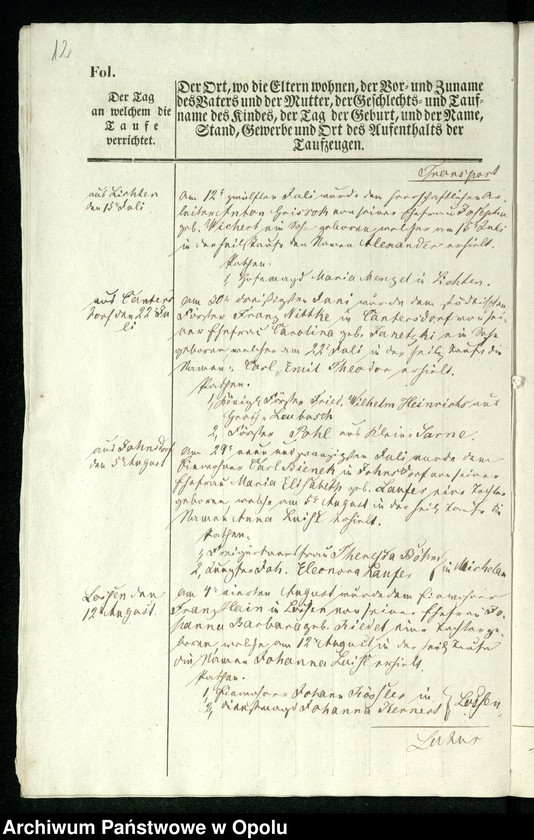 12
Fol.
Der Tag
an welchem die
Taufe
verrichtet.
Der Ort, wo die Eltern wohnen, der Vor- und Zuname
des Vaters und der Mutter, der Geschlechts- und Tauf-
name des Kindes, der Tag der Geburt, und der Name,
Stand, Gewerbe und Ort des Aufenthalts der
Taufzeugen.
Transport
aus Lichten
den 15 Juli
Am 12t zwölften Juli wurde dem herrschaftlichen Ar-
beiter Anton von seiner Ehefrau Josepha
geb. Wichert ein Sohn geboren welcher am 15 Juli
in der heil. Taufe den Namen Alexander erhielt.
Pathen.
1, Hofemagd Maria Menzel in Lichten.
aus Canters
dorf den 22 Ju
li
Am 30t dreißigsten Juni wurde dem städtischen
Förster Franz Nittke in Cantersdorf von sei-
ner Ehefrau Carolina geb. Janetzki ein Sohn
geboren welcher am 22t Juli in der heil. Taufe die
Namen: Carl, Emil Theodor erhielt.
Pathen.
1, Königl. Förster Fried. Wilhelm Heinrichs aus
Groß Leubusch
2, Förster Pohl aus Klein Sarne.
aus Johnsdorf
den 5t August
Am 29t neun und zwanzigsten Juli wurde dem
Einwohner Carl Bienek in Johnsdorf von seiner
Ehefrau Maria Elisabeth geb. Laufer eine Tochter
geboren welche am 5t August in der heil. Taufe die
Namen Anna Luise erhielt.
Pathen.
1, Theresia Böhm
2, Jungfer Joh. Eleonora Laufer } in Michelau
Loßen den
12t August.
Am 4t vierten August wurde dem Einwohner
Franz in Loßen von seiner Ehefrau Jo-
hanna Barbara geb. Riedel eine Tochter ge-
boren, welche am 12t August in der heil. Taufe
die Namen Johanna Luise erhielt.
Pathen.
1, Einwohner Johann in
2, Dienstmagd Johanna } Loßen,
Latus
Archiwum Państwowe w Opolu